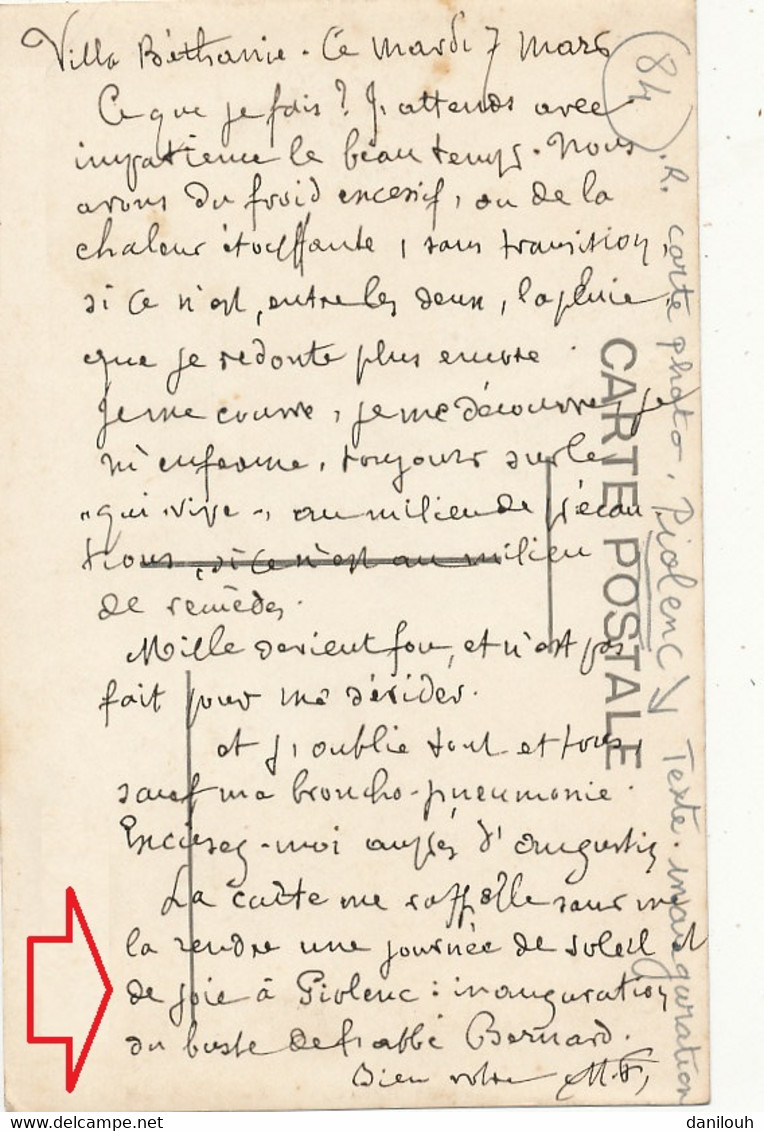 Villa Béthanie. Ce mardi 7 mars
Ce que je fais ? J'attends avec
impatience le beau temps. Nous
avons du froid excessif, ou de la
chaleur étouffante, sans transition,
si ce n'est, entre les deux, la pluie,
que je redoute plus encore.
Je me couvre, je me découvre, je
m'enferme, toujours sur le
"qui vive", au milieu de précau
tions, si ce n'est au milieu
de remèdes.
Mille devient fou, et n'est pas
fait pour me dérider.
et j'oublie tout et tous,
sauf ma broncho-pneumonie.
Excusez-moi auprès d'Augustin
La carte me rappelle sans me
la rendre une journée de soleil et
de joie à Piolenc : inauguration
du buste de l'abbé Bernard.
Bien votre
CARTE POSTALE
(84). R. carte photo. Piolenc Texte. inauguration
www.delcampe.net
danilouh